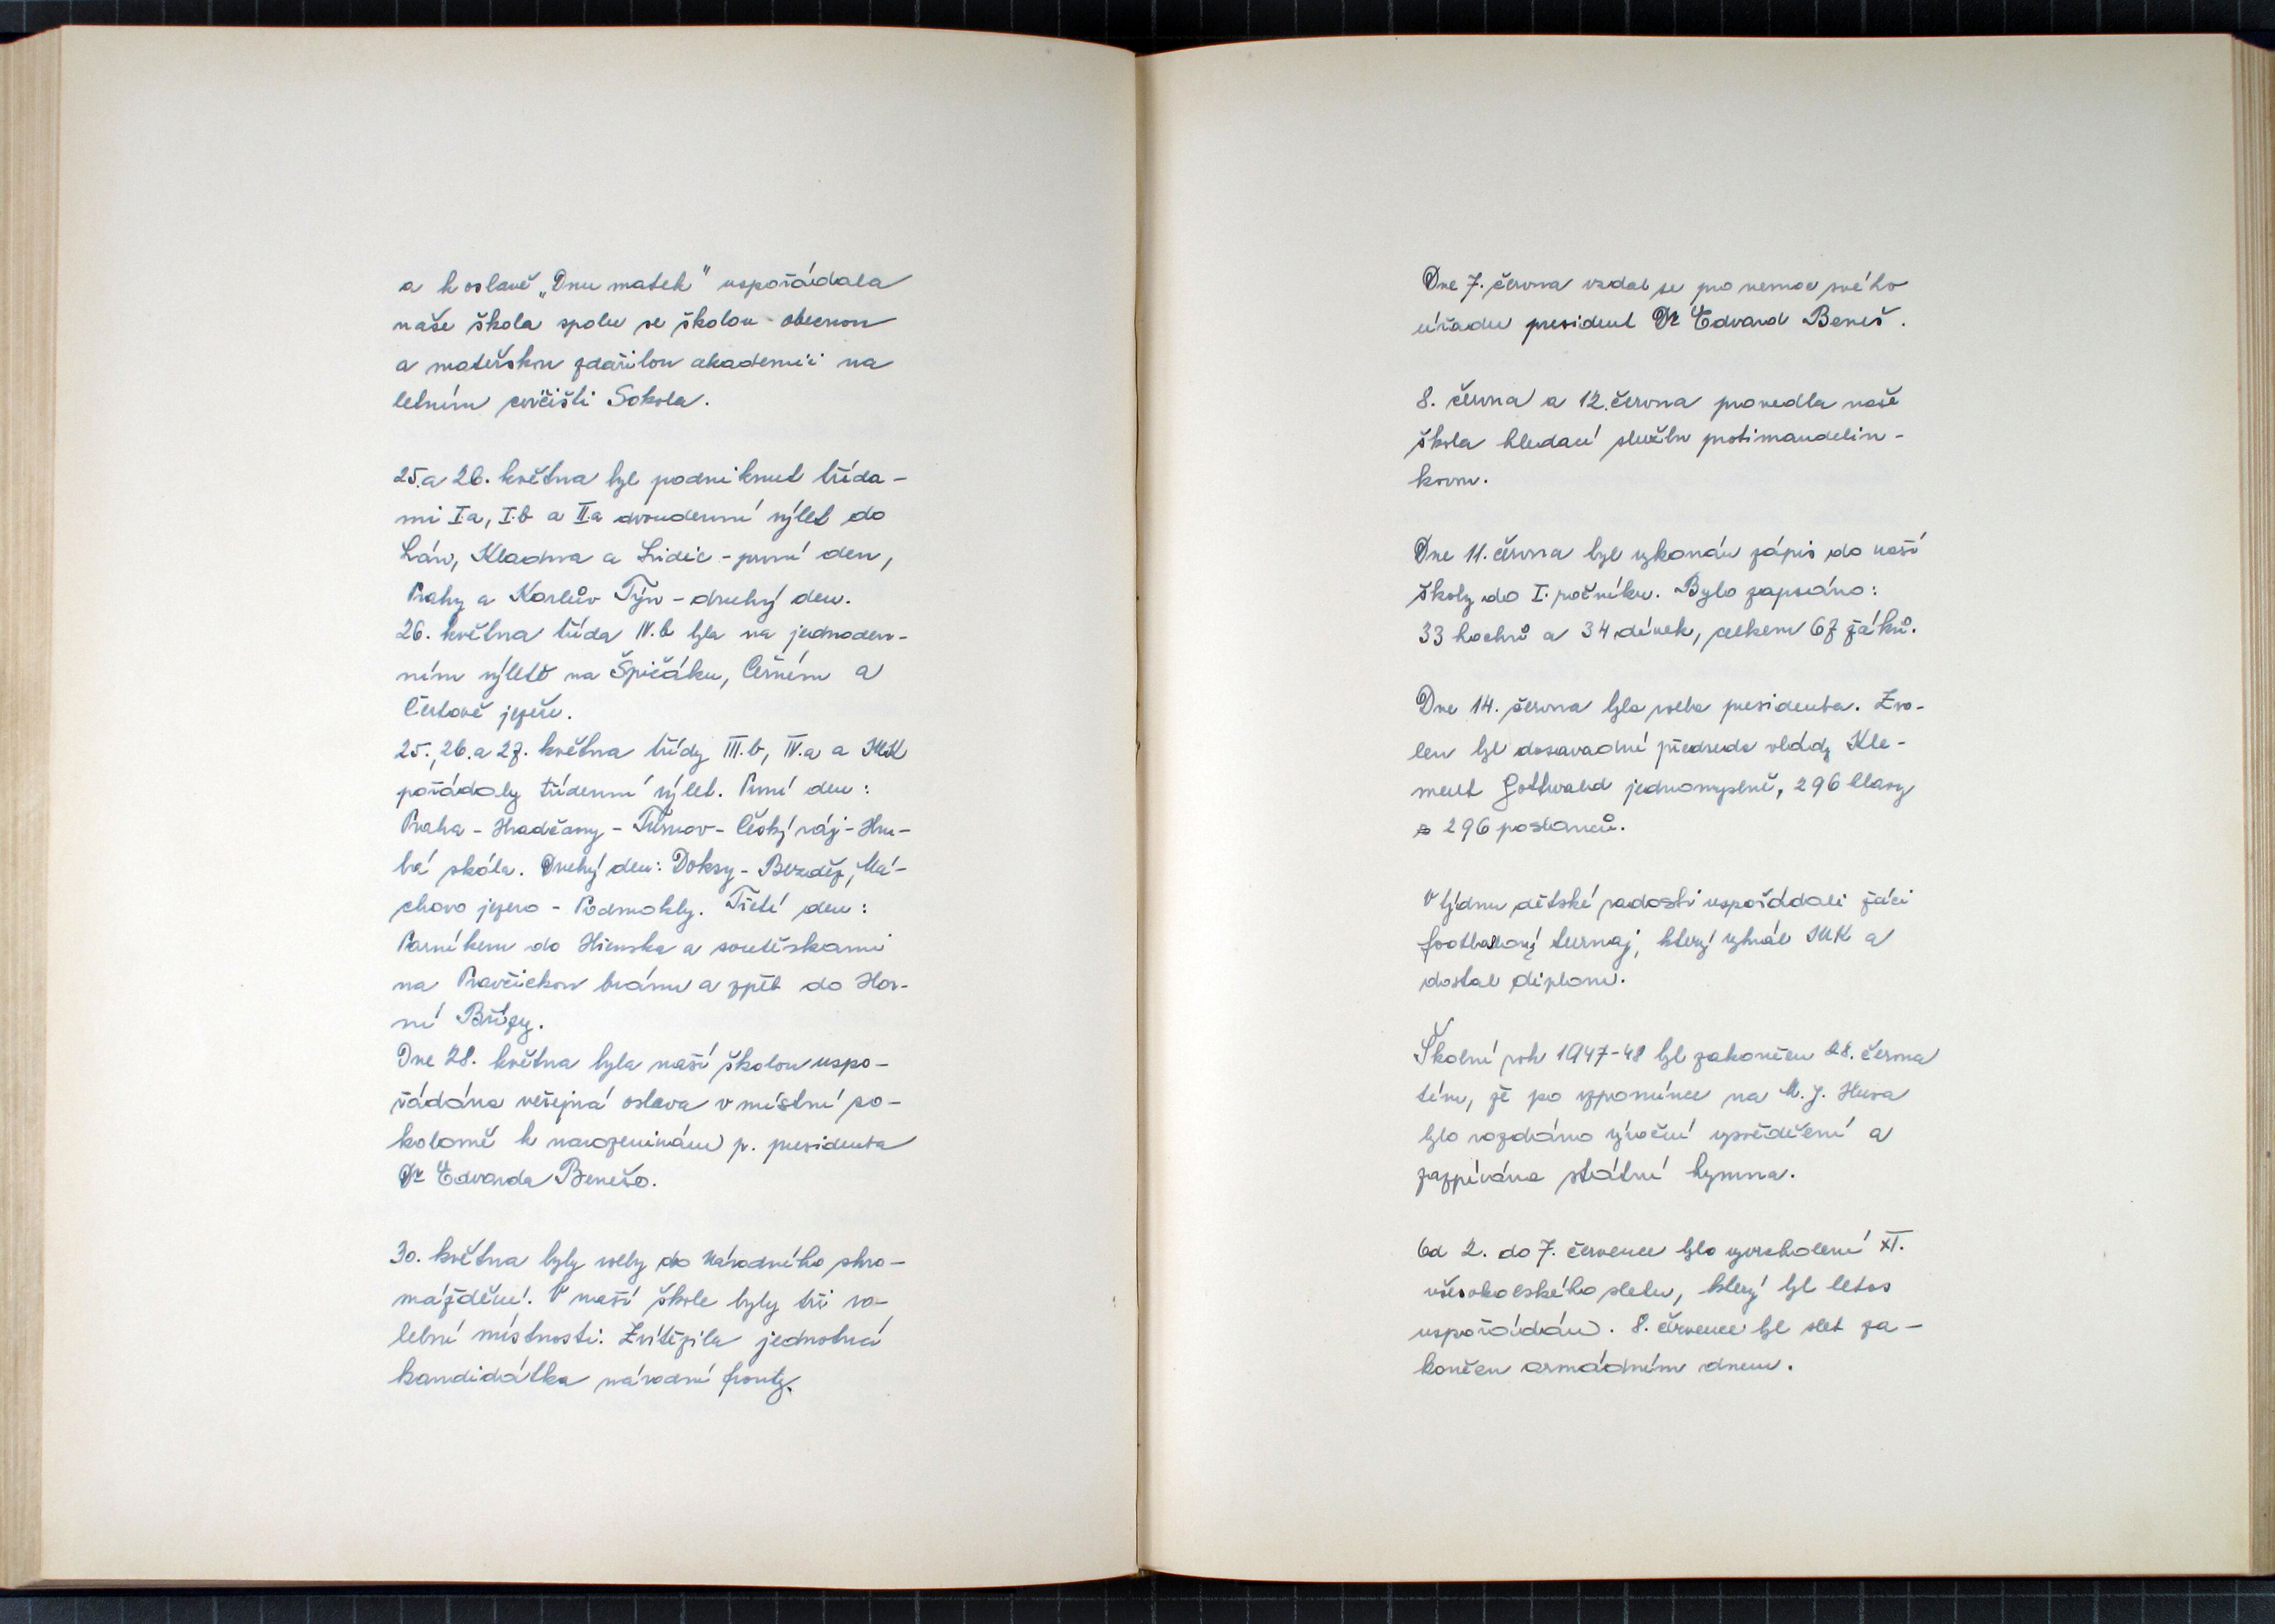 a k oslavě „Dnu matek" uspořádala
naše škola spolu se školou obecnou
a mateřskou zdařilou akademii na
letním cvičišti Sokola.
25. a 26. května byl podniknut třída-
mi I.a, I.b a II.a dvoudenní výlet do
Lán, Kladna a Lidic - první den,
Prahy a Karlův Týn - druhý den.
26. května třída IV.b byla na jednoden-
ním výletě na Špičáku, Černém a
Čertově jezeře.
25., 26. a 27. května třídy III.b, IV.a a JUK
pořádaly třídenní výlet. První den:
Praha - Hradčany - Turnov - Český ráj - Hru-
bá skála. Druhý den: Doksy - Bezděz, Má-
chovo jezero - Podmokly. Třetí den:
Parníkem do Hřenska a soutěskami
na Pravčickou bránu a zpět do Hor-
ní Břízy.
Dne 28. května byla naší školou uspo-
řádána veřejná oslava v místní so-
kolovně k narozeninám p. presidenta
Dr Edvarda Beneše.
30. května byly volby do Národního shro-
máždění. V naší škole byly tři vo-
lební místnosti. Zvítězila jednotná
kandidátka národní fronty.
Dne 7. června vzdal se pro nemoc svého
úřadu president Dr Edvard Beneš.
8. června a 12. června provedla naše
škola hledací službu protimandelin-
kovou.
Dne 11. června byl vykonán zápis do naší
školy do I. ročníku. Bylo zapsáno:
33 hochů a 34 dívek, celkem 67 žáků.
Dne 14. června byla volba presidenta. Zvo-
len byl dosavadní předseda vlády Kle-
ment Gottwald jednomyslně, 296 hlasy
z 296 poslanců.
V týdnu dětské radosti uspořádali žáci
footballový turnaj, který vyhrál JUK a
dostal diplom.
Školní rok 1947-48 byl zakončen 28. června
tím, že po vzpomínce na M. J. Husa
bylo rozdáno výroční vysvědčení a
zazpívána státní hymna.
Od 2. do 7. července bylo vyvrcholení XI.
všesokolského sletu, který byl letos
uspořádán. 8. července byl slet za-
končen armádním dnem.